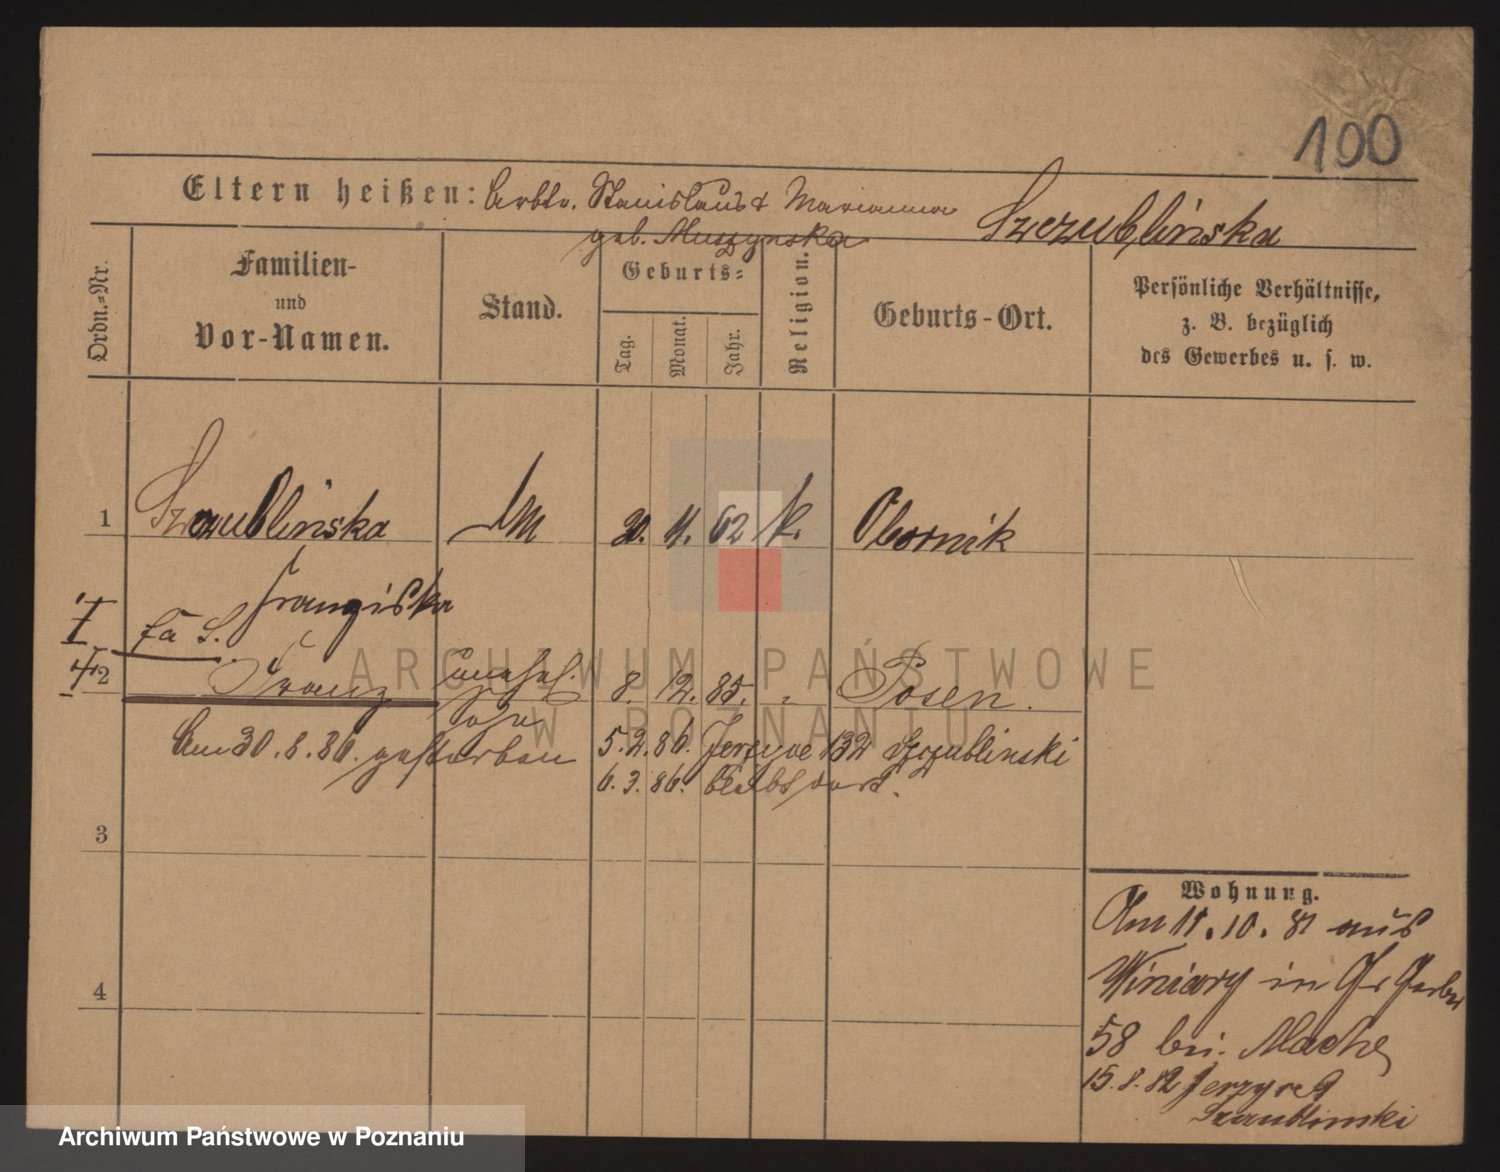 100
Eltern heißen: Arbtr. Stanislaus & Marianna Szczublińska
geb. Muszynska
Ordn.=Nr.
Familien-
und
Vor-Namen.
Stand.
Geburts=
Tag.
Monat.
Jahr.
Religion.
Geburts-Ort.
Persönliche Verhältnisse,
z. B. bezüglich
des Gewerbes u. s. w.
1 Szczublińska 11. 62 k. Obornik
Franziska
2 Franz unehel. 8. 12. 85. " Posen.
Sohn
Am 30. 8. 86. gestorben 5. 2. 86. Jerzyce 132 Szczublinski
6. 3. 86. bleibt dort.
3
4
Wohnung.
Am 11. 10. 81 aus
Winiary in Gr Gerber
58 bei
15. 8. 82 Jerzyce 9
Szczublinski
ARCHIWUM PAŃSTWOWE
W POZNANIU
Archiwum Państwowe w Poznaniu